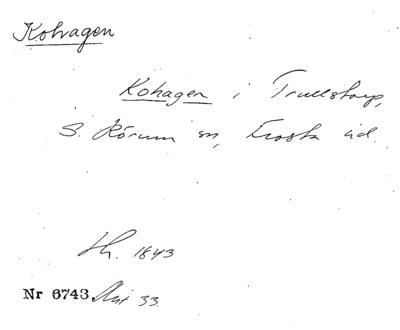 Kohagen
Kohagen i Trullstorp,
S. Rörum sn, Frosta hd.
Lh. 1843
Nr 6743 Akt 33.